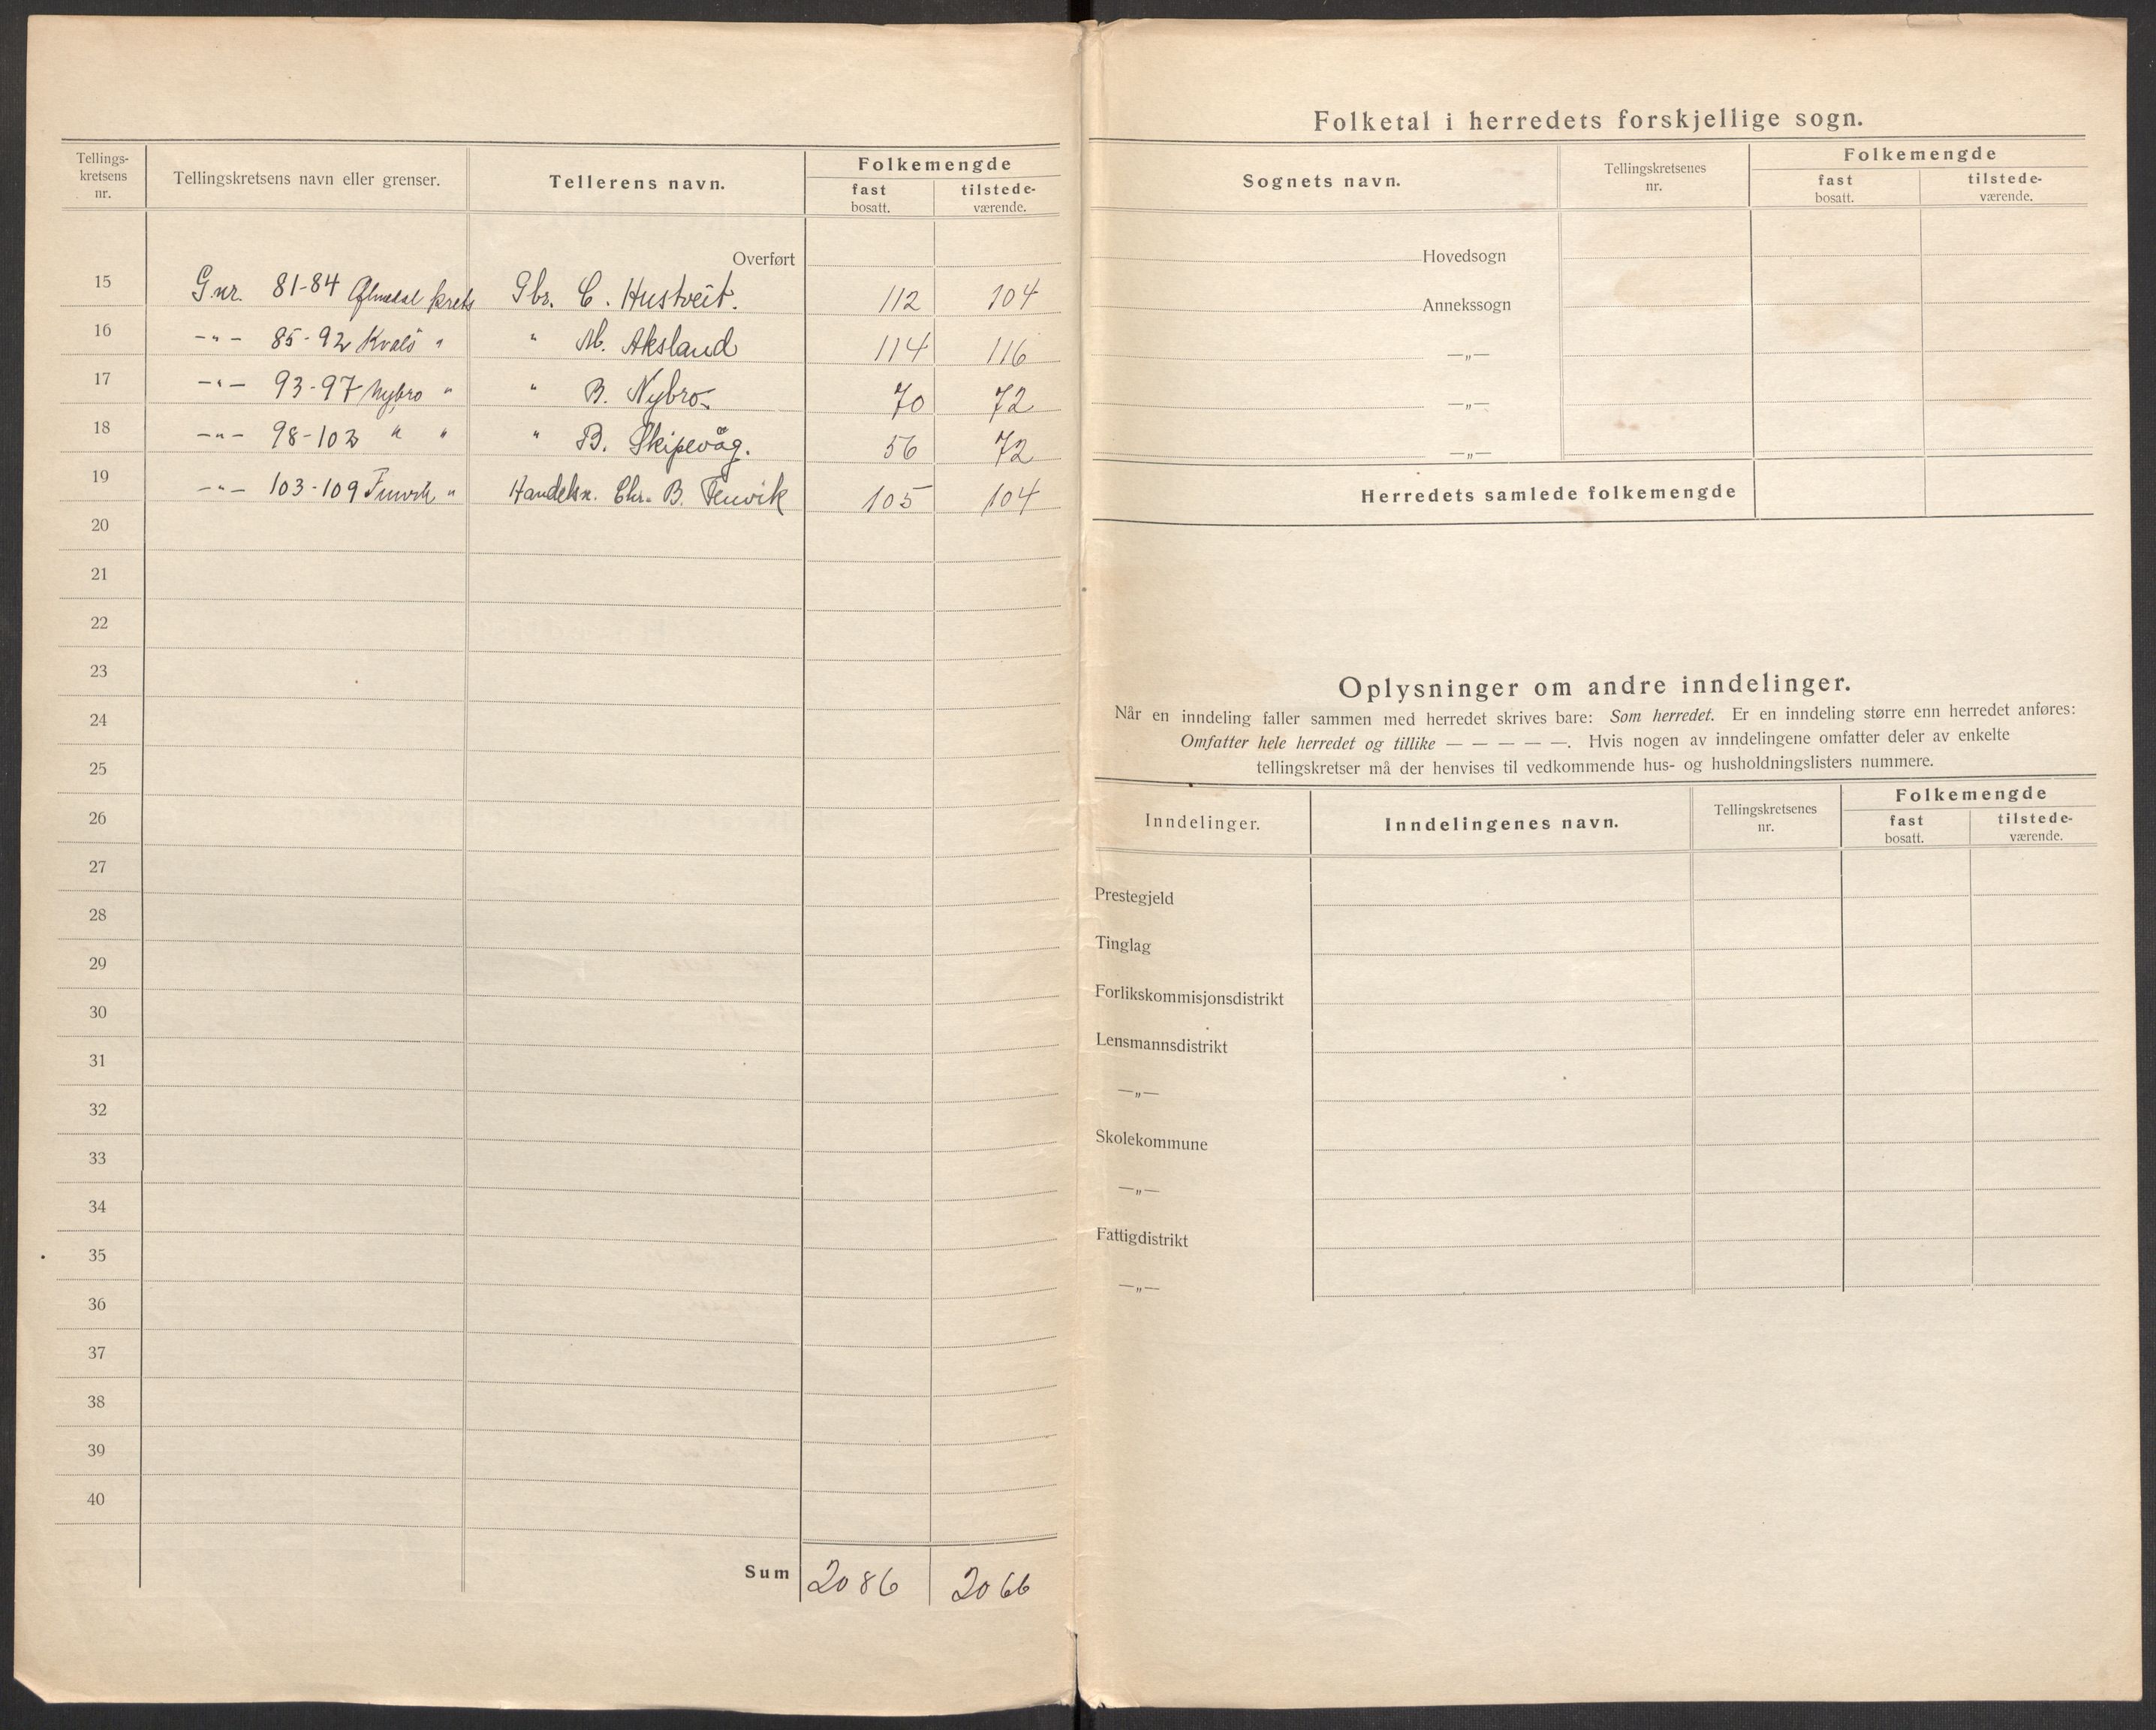 Tellings-
kretsens
nr.
Tellingskretsens navn eller grenser.
Tellerens navn.
Folkemengde
fast
bosatt.
tilstede-
værende.
Overført
15 G.nr. 81-84 krets Gbr. C. Hustveit. 112 104
16 -"- 85-92 Kvalö " " M. Aksland 114 116
17 -"- 93-97 Nybro " " B. Nybro 70 72
18 -"- 98-102 " " " B. Skipevåg. 56 72
19 -"- 103-109 " Handelsm. Chr. B. Tenvik 105 104
20
21
22
23
24
25
26
27
28
29
30
31
32
33
34
35
36
37
38
39
40
Sum 2086 2066
Folketal i herredets forskjellige sogn.
Sognets navn.
Tellingskretsenes
nr.
Folkemengde
fast
bosatt.
tilstede-
værende.
Hovedsogn
Annekssogn
—„—
—„—
—„—
Herredets samlede folkemengde
Oplysninger om andre inndelinger.
Når en inndeling faller sammen med herredet skrives bare: Som herredet. Er en inndeling større enn herredet anføres:
Omfatter hele herredet og tillike — — — — —. Hvis nogen av inndelingene omfatter deler av enkelte
tellingskretser må der henvises til vedkommende hus- og husholdningslisters nummere.
Inndelinger.
Inndelingenes navn.
Tellingskretsenes
nr.
Folkemengde
fast
bosatt.
tilstede-
værende.
Prestegjeld
Tinglag
Forlikskommisjonsdistrikt
Lensmannsdistrikt
—„—
Skolekommune
—„—
Fattigdistrikt
—„—